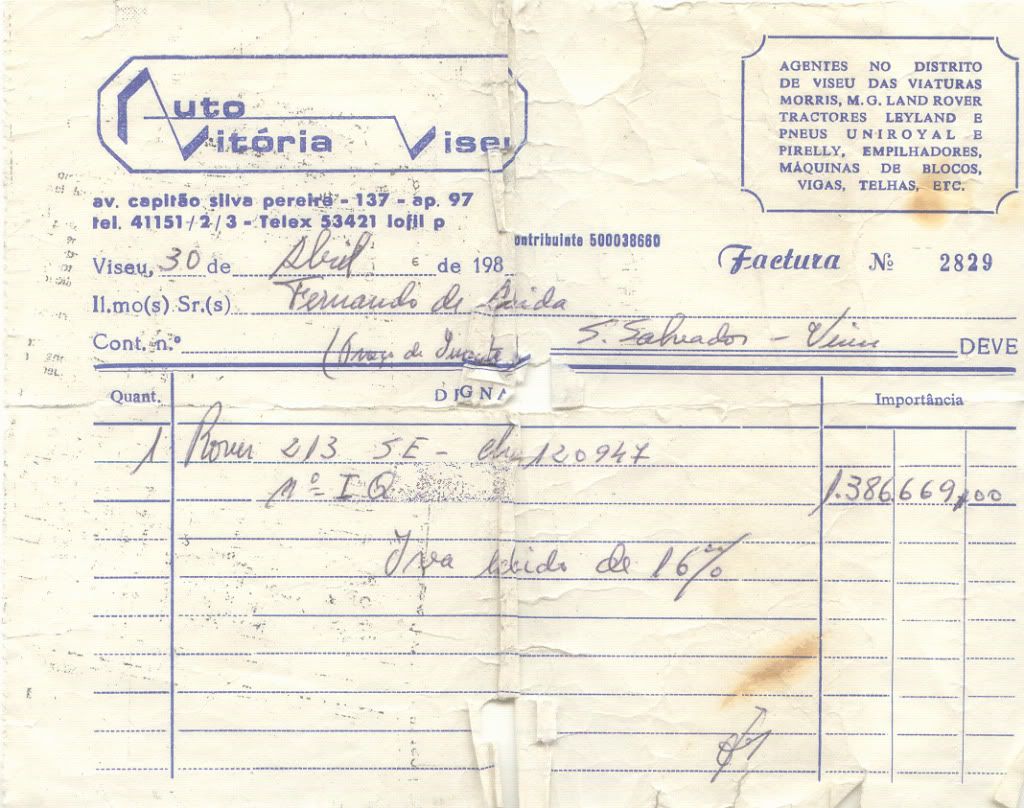 Auto
Vitória Viseu
AGENTES NO DISTRITO
DE VISEU DAS VIATURAS
MORRIS, M.G. LAND ROVER
TRACTORES LEYLAND E
PNEUS UNIROYAL E
PIRELLY, EMPILHADORES,
MÁQUINAS DE BLOCOS,
VIGAS, TELHAS, ETC.
av. capitão silva pereira - 137 - ap. 97
tel. 41151/2/3 - Telex 53421 lofil p
ontribuinte 500038660
Viseu, 30 de Abril de 198
Factura Nº 2829
Il.mo(s) Sr.(s) Fernando de
Cont. n.º
S. Salvador - Viseu DEVE
Quant. Importância
1 Rover 213 SE - 120947
nº I Q 1.386.669,00
Iva de 16%